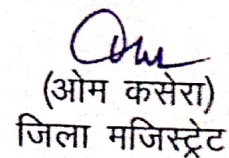 (ओम कसेरा)
जिला मजिस्ट्रेट